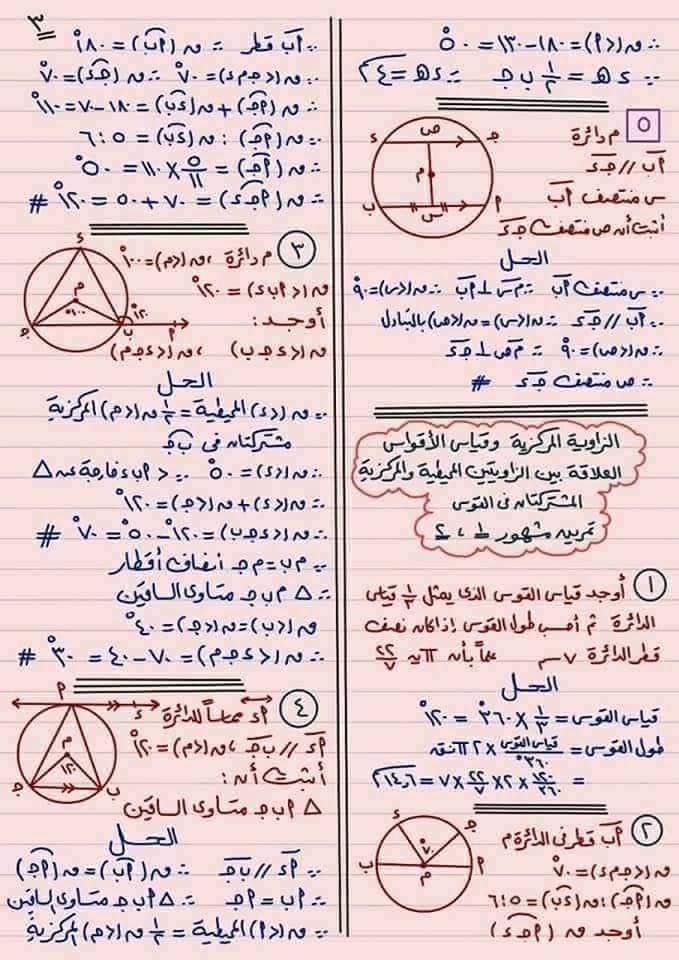 ∴ ق(د م) = ١٨٠ - ١٣٠ = ٥٠°
∵ د هـ = ١/٢ ب جـ ∴ د هـ = ٤ سم
٥
م دائرة
أب // جـ د
س منتصف أب
أثبت أن ص منتصف جـ د
جـ ص د
م
أ س ب
الحل
∵ س منتصف أب ∴ م س ⊥ أب ∴ ق(د س) = ٩٠°
∵ أب // جـ د ∴ ق(د س) = ق(د ص) بالتبادل
∴ ق(د ص) = ٩٠° ∴ م ص ⊥ جـ د
∴ ص منتصف جـ د #
الزاوية المركزية وقياس الأقواس
العلاقة بين الزاويتين المحيطية والمركزية
المشتركتان فى القوس
تمرين مشهور ١، ٢
١ أوجد قياس القوس الذى يمثل ١/٣ قياس
الدائرة ثم أحسب طول القوس إذا كان نصف
قطر الدائرة ٧ سم علماً بأن π = ٢٢/٧
الحل
قياس القوس = ١/٣ × ٣٦٠° = ١٢٠°
طول القوس = قياس القوس/٣٦٠° × ٢ π نق
= ١٢٠/٣٦٠ × ٢ × ٢٢/٧ × ٧ = ١٤,٦ سم
٢ أب قطر فى الدائرة م
ق(د جـ م د) = ٧٠°
ق(أجـ) : ق(د ب) = ٥ : ٦
أوجد ق(أجـ د)
جـ د
٧٠°
أ م ب
٣
∵ أب قطر ∴ ق(أب) = ١٨٠°
∵ ق(د جـ م د) = ٧٠° ∴ ق(جـ د) = ٧٠°
∴ ق(أجـ) + ق(د ب) = ١٨٠ - ٧٠ = ١١٠°
∵ ق(أجـ) : ق(د ب) = ٥ : ٦
∴ ق(أجـ) = ٥/١١ × ١١٠ = ٥٠°
∴ ق(أجـ د) = ٧٠ + ٥٠ = ١٢٠° #
٣ م دائرة، ق(د م) = ١٠٠°
ق(د أ ب د) = ١٢٠°
أوجد:
ق(د د جـ ب)، ق(د د جـ م)
د
م
١٠٠°
١٢٠°
أ ب جـ
الحل
∵ ق(د د) المحيطية = ١/٢ ق(د م) المركزية
مشتركتان فى ب جـ
∴ ق(د د) = ٥٠° ∵ د أ ب د خارجة عن △
∴ ق(د د) + ق(د جـ) = ١٢٠°
∴ ق(د د جـ ب) = ١٢٠° - ٥٠° = ٧٠° #
∵ م ب = م جـ أنصاف أقطار
∴ △ م ب جـ متساوى الساقين
ق(د ب) = ق(د جـ) = ٤٠°
∴ ق(د د جـ م) = ٧٠ - ٤٠ = ٣٠° #
٤ أد مماساً للدائرة
أد // ب جـ، ق(د م) = ١٢٠°
أثبت أن:
△ أ ب جـ متساوى الساقين
أ د
م
١٢٠
ب جـ
الحل
∵ أد // ب جـ ∴ ق(أب) = ق(أجـ)
∴ أب = أجـ ∴ △ أ ب جـ متساوى الساقين
∵ ق(د أ) المحيطية = ١/٢ ق(د م) المركزية